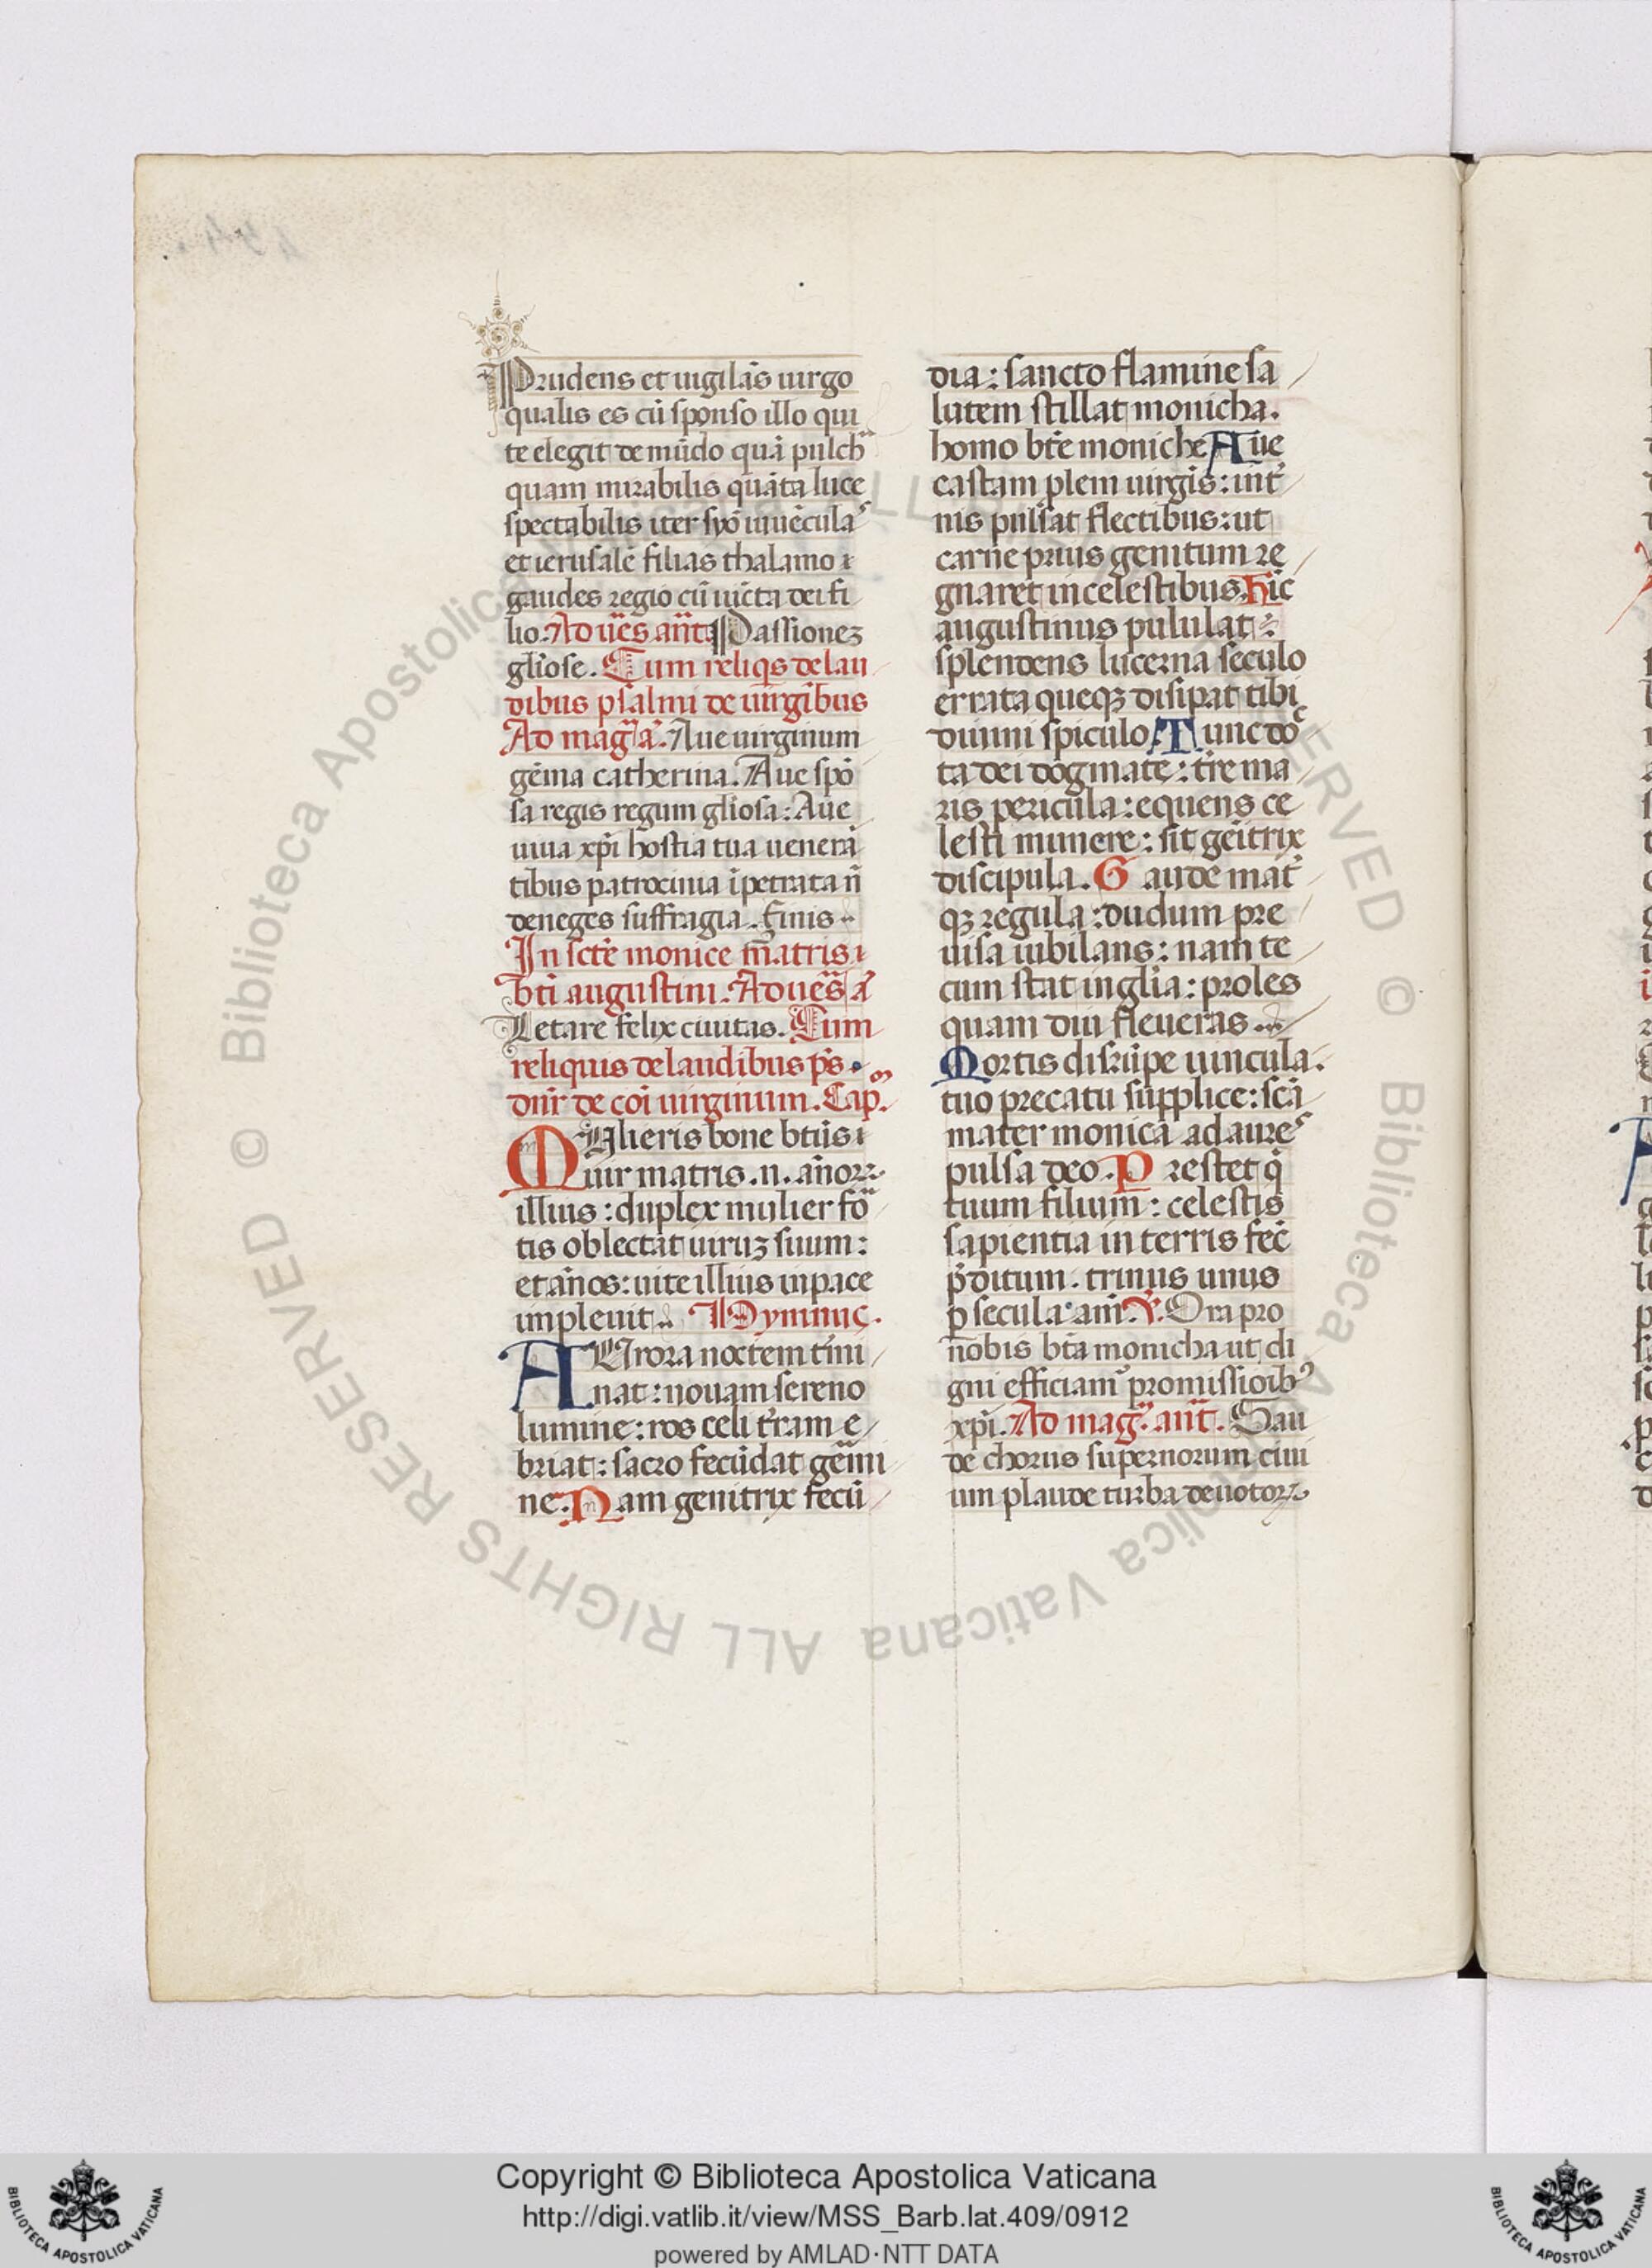 Prudens et uigilās uirgo
qualis es cū sponso illo qui
te elegit de mūdo quā pulchª
quam mirabilis quāta luce
spectabilis iter syō iuuēculaˢ
et ierusalē filias thalamo ⁊
gaudes regio cū iūcta dei fi
lio. Ad ūes an̄t. Passioneꝫ
gl̄iose. Cum reliq̄s de lau
dibus psalmi de uirgībus
Ad magᷓ. aᷓ. Aue uirginum
gēma catherina. Aue spō
sa regis regum gl̄iosa: Aue
uiua xp̄i hostia tua uenerā
tibus patrocinia īpetrata n̄
deneges suffragia. Finis
In scte᷑ monice m̄atris ⁊
bt̄i augustini. Ad uēs. aᷓ
Letare felix ciuitas. Cum
reliquis de laudibus p̄s.
dn̄r de coī uirginum. Cap.ᵐ
MUlieris bone bt̄us ⁊
uir matris .n. an̄oꝝ
illius: duplex mulier foᷓ
tis oblectat uiruꝫ suum:
et an̄os: uite illius in pace
impleuit. Hymnus.
AUrora noctem t᷑mi
nat: nouam sereno
lumine: ros celi t᷑ram e
briat: sacro fecūdat gēmi
ne. Nam genitrix fecū
dia: sancto flamine sa
lutem stillat monicha.
homo bt̄e moniche Aue
castam plem uirgīs: int᷑
nis pulsat flectibus: ut
carne prius genitum re
gnaret in celestibus. Hic
augustinus pululat:
splendens lucerna seculo
errata queqꝫ disipat tibi
diuini spiculo. Tunc doᶜ
ta dei dogmate: t᷑re ma
ris pericula: equens ce
lesti munere: fit geītrix
discipula. Gaude mat᷑
qꝫ regula: dudum pre
uisa iubilans: nam te
cum stat in gl̄ia: proles
quam diu fleueras.
Mortis disrūpe uincula.
tuo precatu supplice: scā
mater monica ad aureˢ
pulsa deo. Prestet q̄
tuum filium: celestis
sapientia in terris fec᷑
p̄ditum. trinus unus
ꝑ secula am̄. ℣. Ora pro
nobis bt̄a monicha ut di
gni efficiam᷑ promissioībꝰ
xp̄i. Ad magᷓ. an̄t. Gau
de chorus supernorum ciui
um plaude turba deuotoꝝ
Copyright © Biblioteca Apostolica Vaticana
http://digi.vatlib.it/view/MSS_Barb.lat.409/0912
powered by AMLAD·NTT DATA
BIBLIOTECA APOSTOLICA VATICANA
BIBLIOTECA APOSTOLICA VATICANA
© Biblioteca Apostolica Vaticana ALL RIGHTS RESERVED © Biblioteca Apostolica Vaticana ALL RIGHTS RESERVED